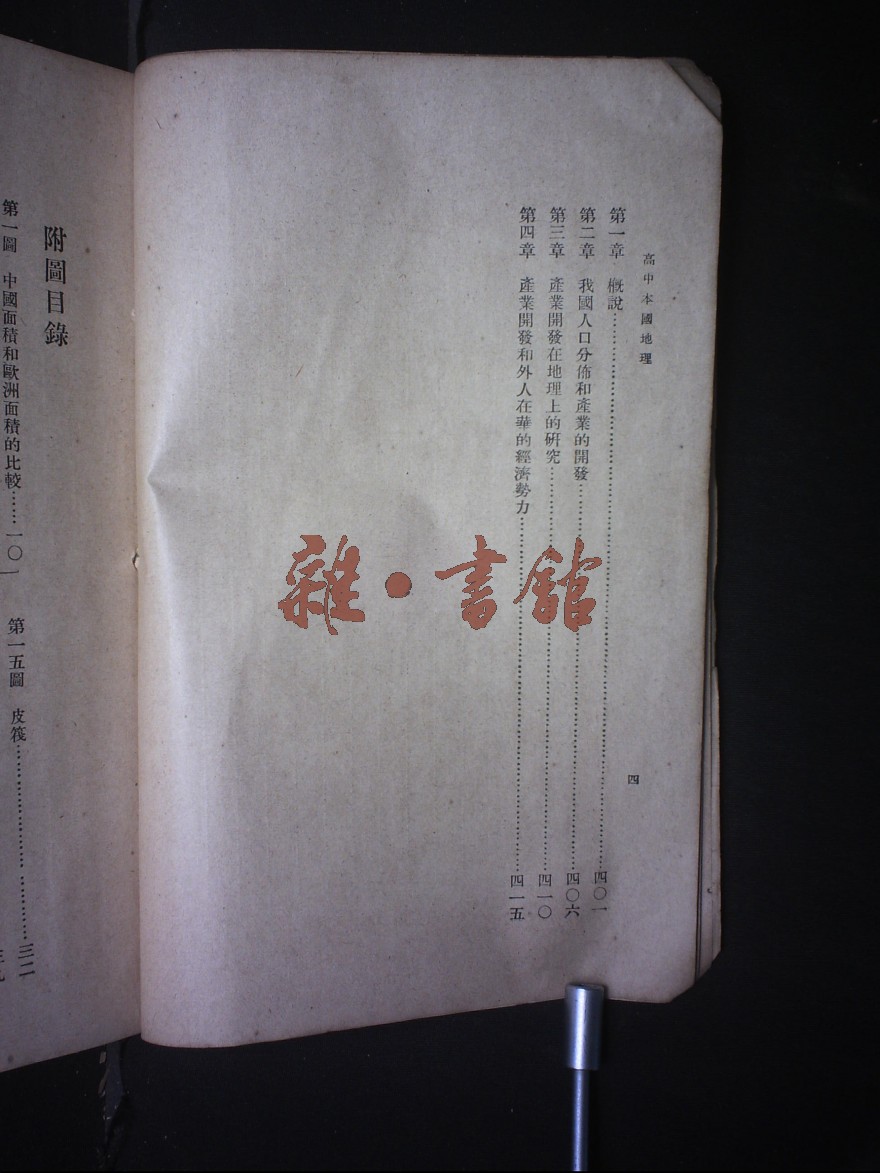 高中本國地理
四
第一章　概說……四〇一
第二章　我國人口分佈和產業的開發……四〇六
第三章　產業開發在地理上的研究……四一〇
第四章　產業開發和外人在華的經濟勢力……四一五
雜・書館
附圖目錄
第一圖　中國面積和歐洲面積的比較……一〇
第一五圖　皮筏……三二